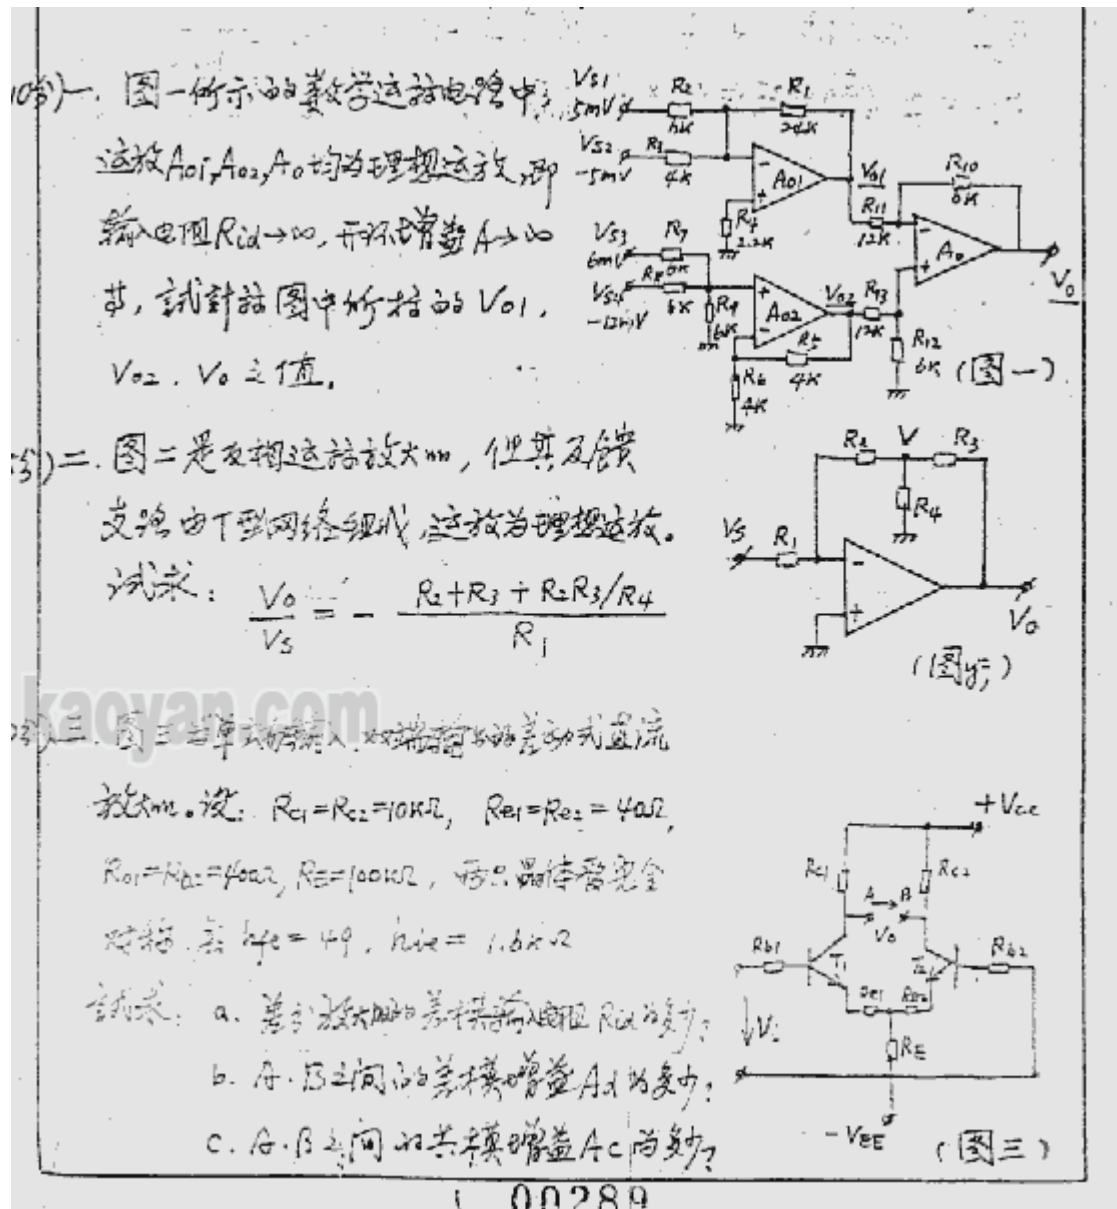 一. 图一所示的数学运放电路中,
运放A01,A02,A0均为理想运放,即
输入电阻Rid→∞, 开环增益A→∞
试计算图中所标的V01,
V02. V0之值。
VS1
5mV
R2
R1
24K
VS2
-5mV
R3
4K
A01
V01
R4
2.2K
R11
12K
R10
6K
A0
V0
VS3
6mV
R7
6K
VS4
-12mV
R8
6K
R9
6K
A02
V02
R13
12K
R5
4K
R6
4K
R12
6K
(图一)
二. 图二是反相运算放大器, 但其反馈
支路由T型网络组成,运放为理想运放。
试求:
V0/VS = - (R2+R3+R2R3/R4)/R1
R2
V
R3
R4
VS
R1
V0
kaoyan.com
三. 图三为单端输入.双端输出的差动式直流
放大器。设: Rc1=Rc2=10KΩ, Re1=Re2=40Ω,
Rb1=Rb2=400Ω, RE=100KΩ, 两只晶体管完全
对称. hfe=49, hie=1.6KΩ
试求: a. 差分放大器的差模输入电阻Rid为多少?
b. A.B之间的差模增益Ad为多少?
c. A.B之间的共模增益Ac为多少?
+Vcc
Rc1
Rc2
A
B
V0
Rb1
T1
T2
Rb2
Re1
Re2
Vi
RE
-VEE
(图三)
00289